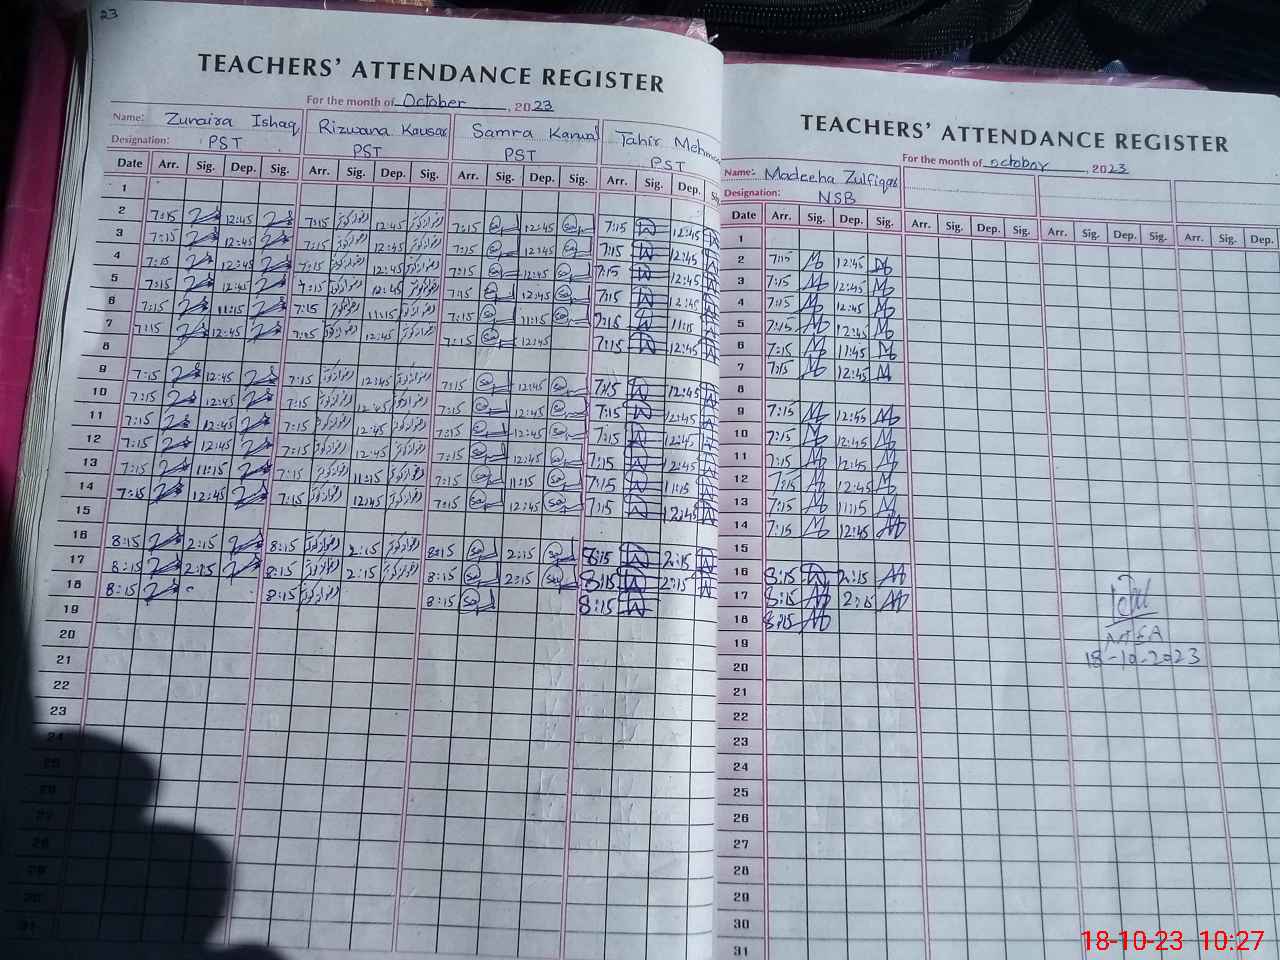 23
TEACHERS' ATTENDANCE REGISTER
For the month of October, 2023
Name: Zunaira Ishaq Rizwana Kousar Samra Kanwal Tahir
Designation: PST PST PST PST
Date Arr. Sig. Dep. Sig. Arr. Sig. Dep. Sig. Arr. Sig. Dep. Sig. Arr. Sig. Dep.
1
2 7:15 12:45 7:15 12:45 7:15 12:45 7:15 12:45
3 7:15 12:45 7:15 12:45 7:15 12:45 7:15 12:45
4 7:15 12:45 7:15 12:45 7:15 12:45 7:15 12:45
5 7:15 12:45 7:15 12:45 7:15 12:45 7:15 12:45
6 7:15 11:15 7:15 11:15 7:15 11:15 7:15 11:15
7 7:15 12:45 7:15 12:45 7:15 12:45 7:15 12:45
8
9 7:15 12:45 7:15 12:45 7:15 12:45 7:15 12:45
10 7:15 12:45 7:15 12:45 7:15 12:45 7:15 12:45
11 7:15 12:45 7:15 12:45 7:15 12:45 7:15 12:45
12 7:15 12:45 7:15 12:45 7:15 12:45 7:15 12:45
13 7:15 11:15 7:15 11:15 7:15 11:15 7:15 11:15
14 7:15 12:45 7:15 12:45 7:15 12:45 7:15 12:45
15
16 8:15 2:15 8:15 2:15 8:15 2:15 8:15 2:15
17 8:15 2:15 8:15 2:15 8:15 2:15 8:15 2:15
18 8:15 8:15 8:15 8:15
19
20
21
22
23
24
25
26
27
28
29
30
31
TEACHERS' ATTENDANCE REGISTER
For the month of octobor, 2023
Name: Madeeha Zulfiqar
Designation: NSB
Date Arr. Sig. Dep. Sig. Arr. Sig. Dep. Sig. Arr. Sig. Dep. Sig. Arr. Sig. Dep.
1
2 7:15 12:45
3 7:15 12:45
4 7:15 12:45
5 7:15 12:45
6 7:15 11:45
7 7:15 12:45
8
9 7:15 12:45
10 7:15 12:45
11 7:15 12:45
12 7:15 12:45
13 7:15 11:15
14 7:15 12:45
15
16 8:15 2:15
17 8:15 2:15
18 8:15
19
20
21
22
23
24
25
26
27
28
29
30
31
MEA
18-10-2023
18-10-23 10:27